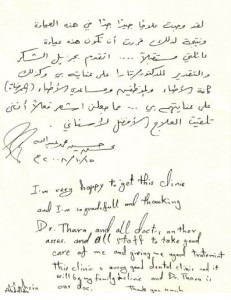 لقد وجدت علاجا جيدا جدا في هذه العيادة
ونتيجة لذلك قررت أن تكون هذه عيادة
عائلتي مستقبلا .... أتقدم بجزيل الشكر
والتقدير للدكتورة تارا على عنايتها بي وكذلك
كافة الأطباء والموظفين ومساعدي الأطباء
على عنايتهم بي ... مما جعلني أشعر فعلا أنني
تلقيت العلاج الأفضل لأسناني.
حسين عبدالله
I'm very happy to get this clinic
and I'm so gratifull and thanking
Dr. Thara and all doct, an ther
asses. and all staff to take good
care of me and giving me good tratemint
this clinic is a very good dental clinic and it
will being my family clinic and Dr. Thara is
our doc. Thank you much